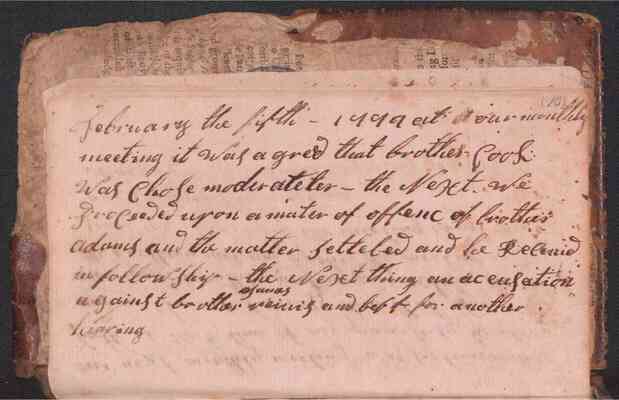 February the fifth - 1799 at our monthly
meeting it was agred that brother Cook
was Chose moderateter - the Next we
Proceeded upon a mater of offenc of brother
adams and the matter setteled and he Receivid
in followship - the Next thing an acusation
against brother and left for another
hearing